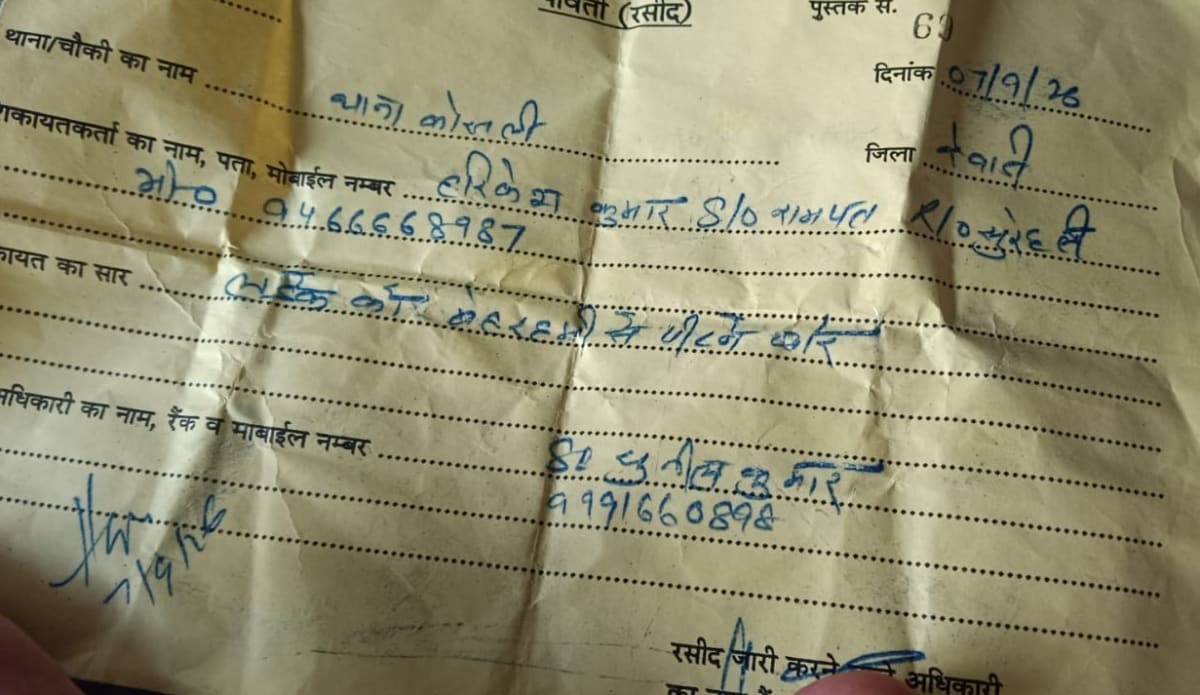 (रसीद)
पुस्तक सं. 69
थाना/चौकी का नाम थाना कोसली
दिनांक 07/9/26
जिला रेवाड़ी
का नाम, पता, मोबाईल नम्बर हरिकेश कुमार S/O रामपत R/O
मो0 9466668987
का सार को बेरहमी से पीटने बारे
अधिकारी का नाम, रैंक व मोबाईल नम्बर SI सुनील कुमार
9991660898
7/9/26
रसीद जारी करने अधिकारी